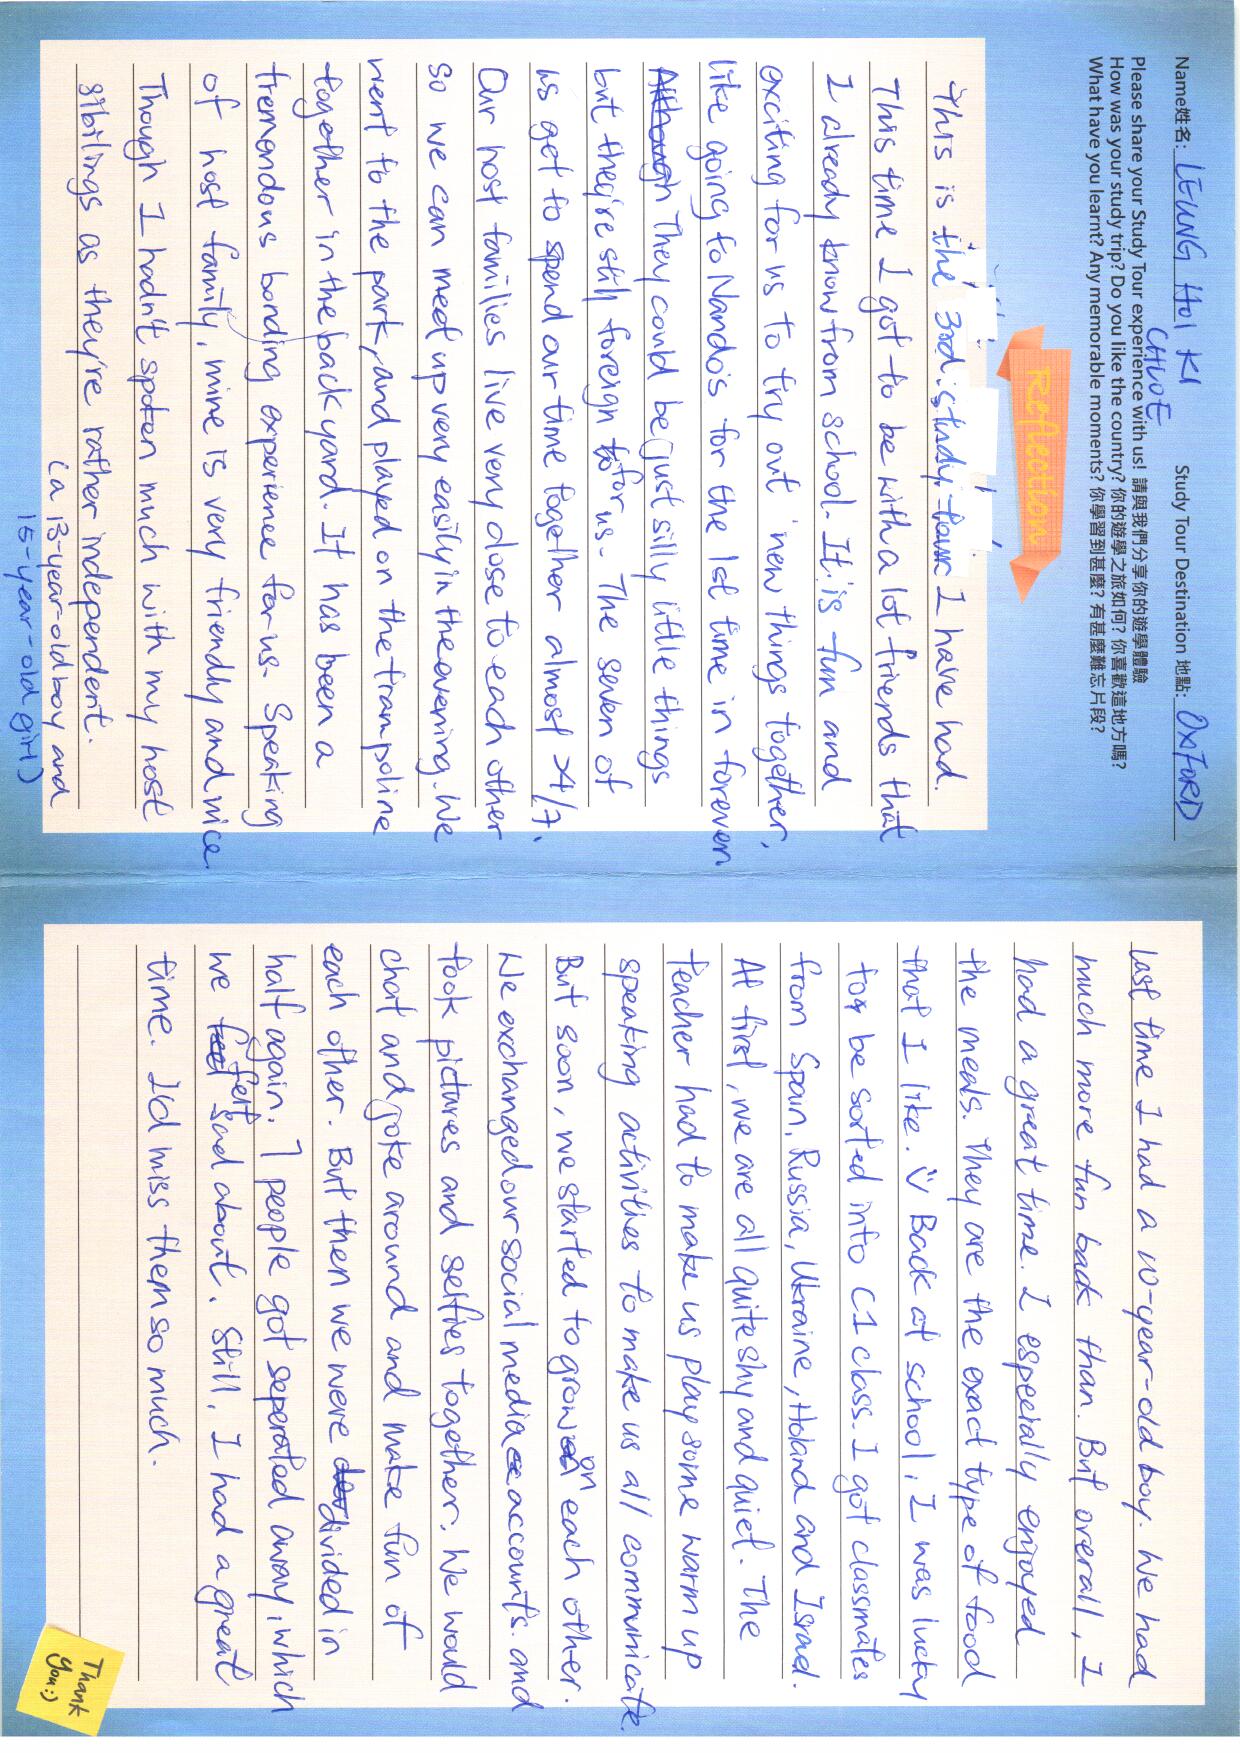 Name姓名: LEUNG HOI KI CHLOE Study Tour Destination 地點: OXFORD
Please share your Study Tour experience with us! 請與我們分享你的遊學體驗
How was your study trip? Do you like the country? 你的遊學之旅如何? 你喜歡這地方嗎?
What have you learnt? Any memorable moments? 你學習到甚麼? 有甚麼難忘片段?
Reflection
This is the 3rd study tour I have had.
This time I got to be with a lot friends that
I already know from school. It is fun and
exciting for us to try out new things together,
like going to Nando's for the 1st time in forever.
Although They could be just silly little things
but they're still foreign to for us. The seven of
us get to spend our time together almost 24/7.
Our host families live very close to each other
so we can meet up very easily in the evening. We
went to the park, and played on the trampoline
together in the backyard. It has been a
tremendous bonding experience for us. Speaking
of host family, mine is very friendly and nice.
Though I hadn't spoken much with my host
sibilings as they're rather independent.
(a 13-year-old boy and
15-year-old girl)
last time I had a 10-year-old boy. We had
much more fun back than. But overall, I
had a great time. I especially enjoyed
the meals. They are the exact type of food
that I like. Back at school, I was lucky
to be sorted into C1 class. I got classmates
from Spain, Russia, Ukraine, Holand and Israel.
At first, we are all quite shy and quiet. The
teacher had to make us play some warm up
speaking activities to make us all communicate.
But soon, we started to grow on each other.
We exchanged our social media accounts. and
took pictures and selfies together. We would
chat and joke around and make fun of
each other. But then we were divided in
half again. 7 people got seperated away, which
we feel felt sad about. Still, I had a great
time. I'd miss them so much.
Thank
you :)